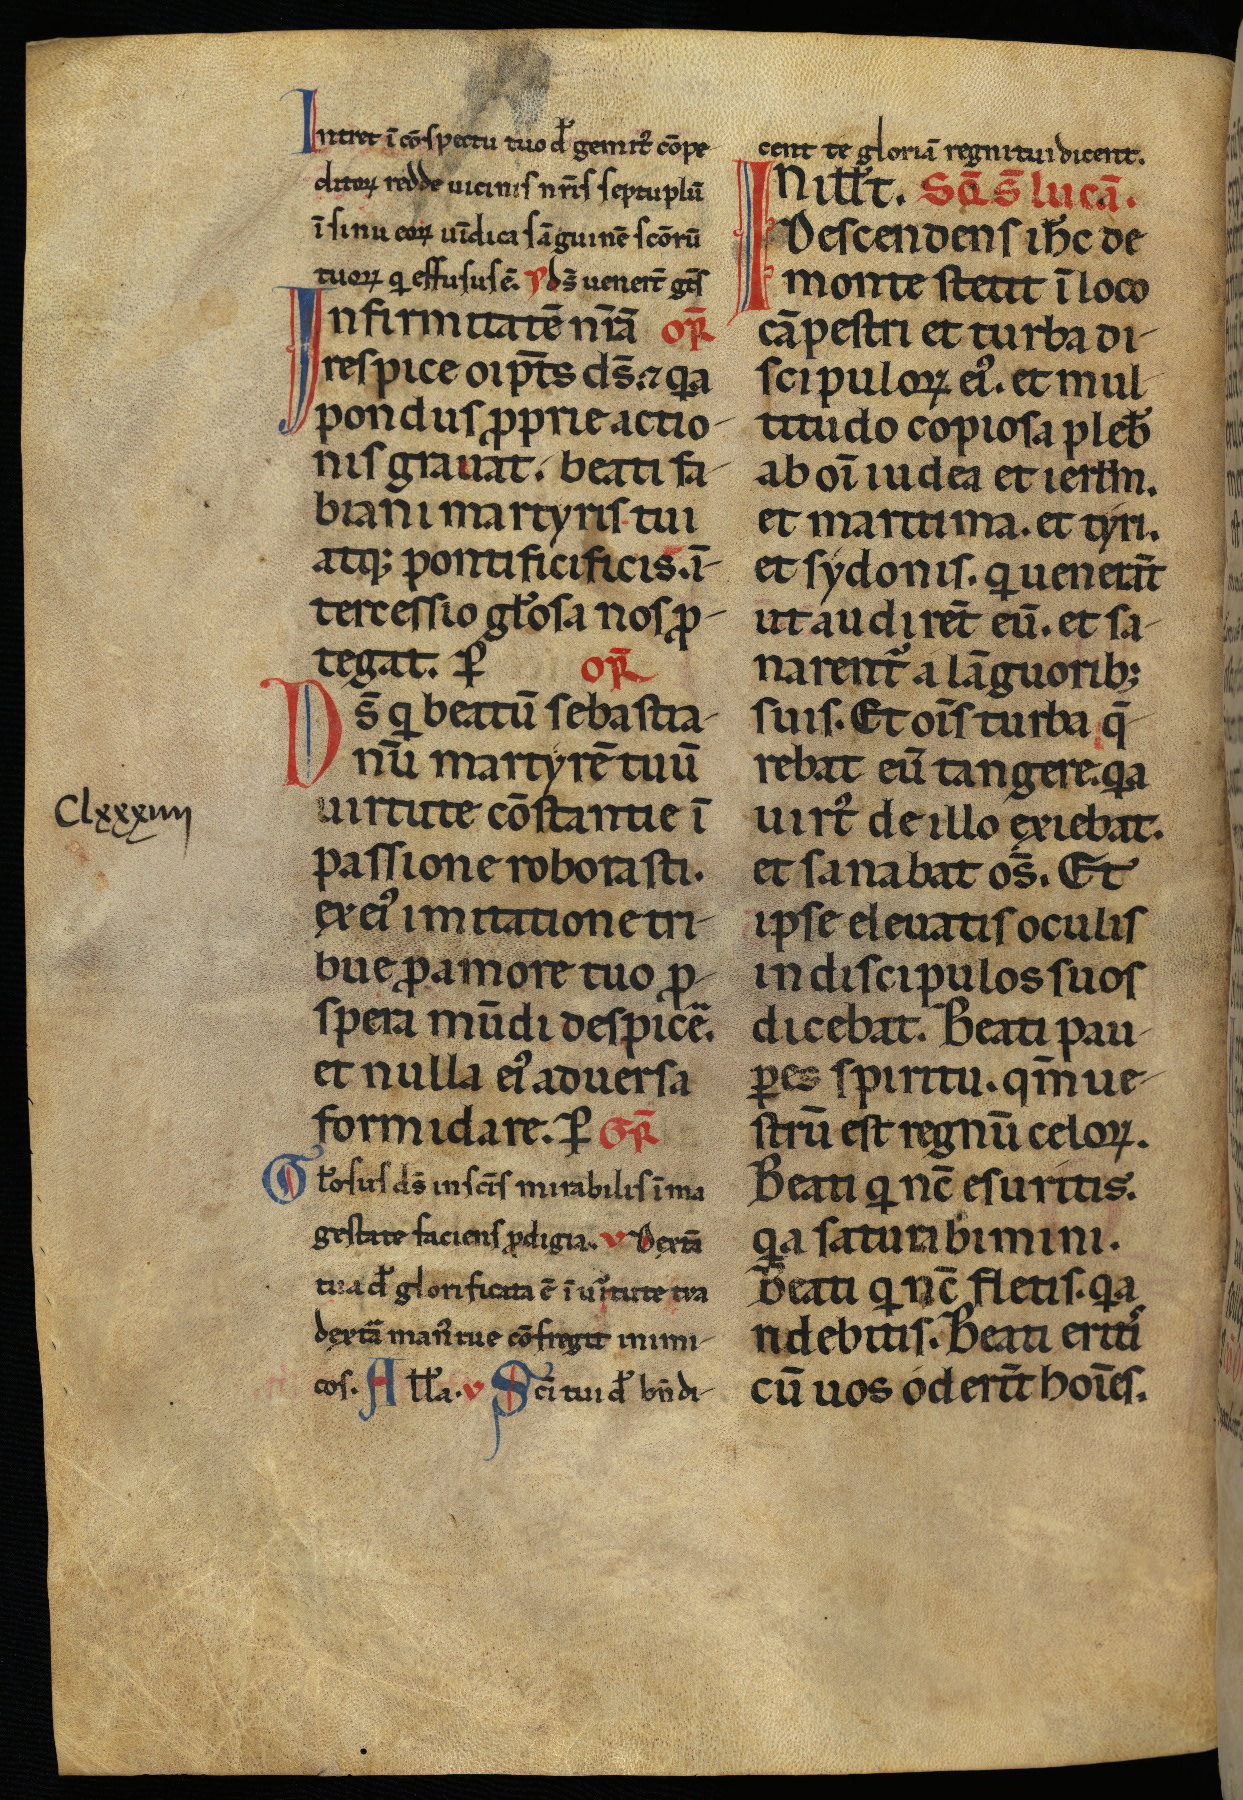 Intret ī cōspectu tuo dꝰ gemitꝰ cōpe
ditoꝝ redde uicinis nr̄is septuplū
ī sinu eoꝝ uīdica sāguinē scōrū
tuoꝝ q̇ effusus ē. p̄ ds̄ uenert̄ gt̄s
Infirmitatē nr̄ā or̄
respice oīpt̄s ds̄. ⁊ qa
pondus ꝓprie actio-
nis grauat. beati fa-
biani martyris tui
atqꝫ pontificificis. ī-
tercessio gl̄osa nos ꝓ-
tegat. P̱ or̄
Ds̄ q̇ beatū sebastia-
nū martyrē tuū
uirtute cōstantie ī
passione roborasti.
ex eiꝰ imitatione tri-
bue ꝓ amore tuo ꝓ-
spera mūdi despicē.
et nulla eiꝰ aduersa
formidare. P̱ Gr̄
Gl̄osus ds̄ in scīs mirabilis ī ma
gestate faciens ꝓdigia. v Dextā
tua dꝰ glorificata ē ī uirtute tra
dextā manꝰ tue cōfregit inimi-
cos. All̄a. v Scī tui dꝰ bn̄di-
Clxxxiiii
cent te gloriā regni tui dicent.
IN ill̄ t̄. Sc̄d̄ s̄ lucā.
Descendens ih̄c de
monte stetit ī loco
cāpestri et turba di-
scipuloꝝ eiꝰ. et mul-
titudo copiosa pleb̄
ab oī iudea et ierl̄m.
et marittima. et tyri.
et sydonis. q̇ uenerūt
ut audirēt eū. et sa-
narentꝰ a lāguoribꝫ
suis. Et oīs turba q̄-
rebat eū tangere. qa
uirtꝰ de illo exiebat.
et sanabat os̄. Et
ipse eleuatis oculis
in discipulos suos
dicebat. Beati pau-
ꝑes spiritu. qm̄ ue-
strū est regnū celoꝝ.
Beati q̇ nc̄ esuritis.
qa saturabimini.
beati q̇ nc̄ fletis. qa
ridebitis. Beati eritis
cū uos oderūt hoīes.